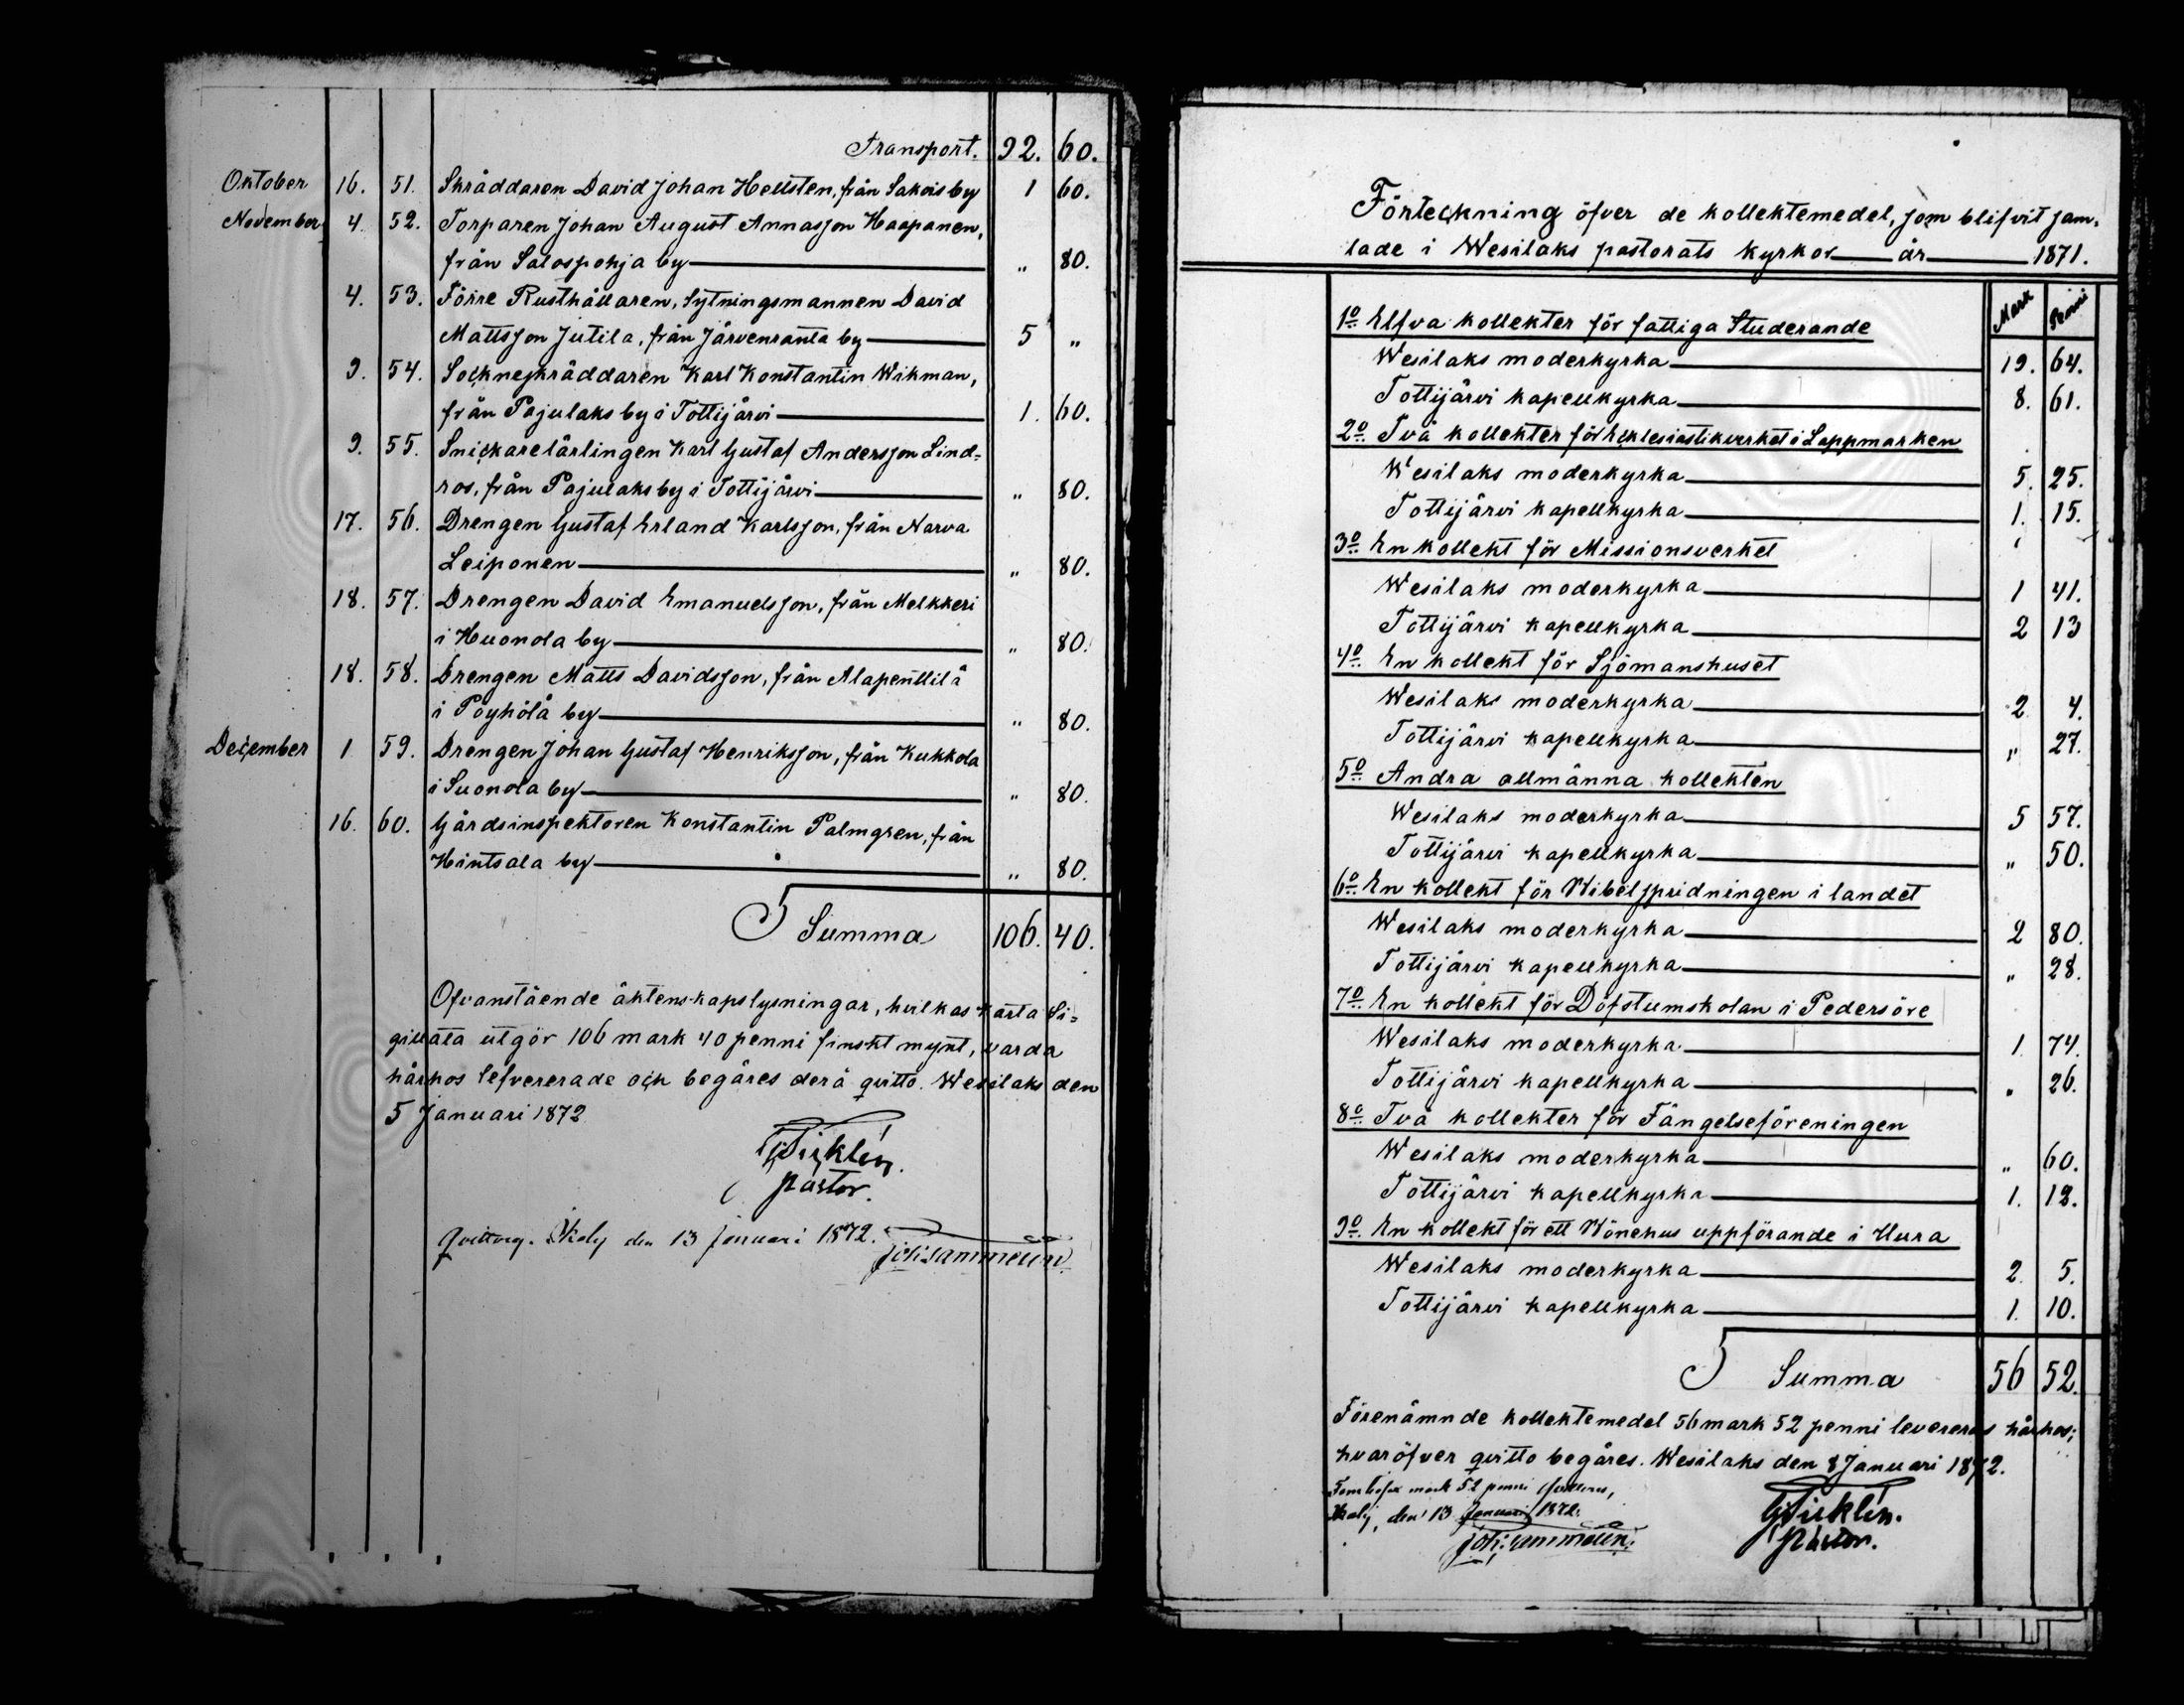 Transport. 92. 60.
Oktober 16. 51. Skräddaren David Johan Hellsten, från Sakois by 1 60.
November 4. 52. Torparen Johan August Annasson Haapanen,
från Salospohja by " 80.
4. 53. Förre Rusthållaren, Sytningsmannen David
Mattsson Jutila, från Järvenranta by 5 "
9. 54. Sockneskräddaren Karl Konstantin Wikman,
från Pajulaks by i Tottijärvi 1. 60.
9. 55. Snickarelärlingen Karl Gustaf Andersson Lind=
ros, från Pajulaks by i Tottijärvi " 80.
17. 56. Drengen Gustaf Erland Karlsson, från Narva
Leiponen " 80.
18. 57. Drengen David Emanuelsson, från Melkkeri
i Huonola by " 80.
18. 58. Drengen Matts Davidsson, från Alapenttilä
i Pöyhölä by " 80.
December 1 59. Drengen Johan Gustaf Henriksson, från Kukkola
i Suonola by " 80.
16. 60. Gårdsinspektoren Konstantin Palmgren, från
Hintsala by " 80.
Summa 106. 40.
Ofvanstående äktenskapslysningar, hvilkas karta Si=
gillata utgör 106 mark 40 penni finskt mynt, varda
härhos lefvererade och begäres derå qvitto. Wesilaks den
5 Januari 1872
G Dicklén.
Pastor.
den 13 Januari 1872.
Joh: Sammelin
Förteckning öfver de kollektemedel, som blifvit sam-
lade i Wesilaks pastorats kyrkor år 1871.
Mark Penni
1o Elfva kollekter för fattiga Studerande
Wesilaks moderkyrka 19. 64.
Tottijärvi kapellkyrka 8. 61.
2o Två kollekter för Ecklesiastikverket i Lappmarken
Wesilaks moderkyrka 5. 25.
Tottijärvi kapellkyrka 1. 15.
3o En kollekt för Missionsverket
Wesilaks moderkyrka 1 41.
Tottijärvi kapellkyrka 2 13
4o En kollekt för Sjömanshuset
Wesilaks moderkyrka 2 4.
Tottijärvi kapellkyrka " 27.
5o Andra allmänna kollekten
Wesilaks moderkyrka 5 57.
Tottijärvi kapellkyrka " 50.
6o En kollekt för Bibelspridningen i landet
Wesilaks moderkyrka 2 80.
Tottijärvi kapellkyrka " 28.
7o En kollekt för Döfstumskolan i Pedersöre
Wesilaks moderkyrka 1 74.
Tottijärvi kapellkyrka " 26.
8o Två kollekter för Fängelseföreningen
Wesilaks moderkyrka " 60.
Tottijärvi kapellkyrka 1. 12.
9o En kollekt för ett Bönehus uppförande i Uura
Wesilaks moderkyrka 2. 5.
Tottijärvi kapellkyrka 1. 10.
Summa 56 52.
Förenämnde kollektemedel 56 mark 52 penni levereras härhos;
hvaröfver qvitto begäres. Wesilaks den 8 Januari 1872.
mark 52 penni
den 13 Januari 1872.
Joh: Sammelin.
G Dicklén.
Pastor.